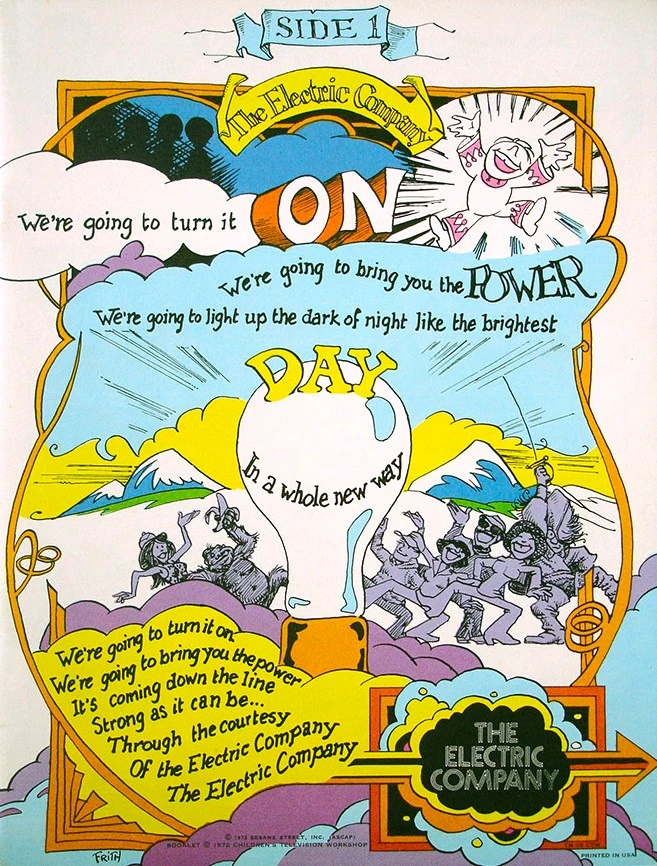 SIDE 1
The Electric Company
We're going to turn it ON
We're going to bring you the POWER
We're going to light up the dark of night like the brightest
DAY
In a whole new way
We're going to turn it on
We're going to bring you the power
It's coming down the line
Strong as it can be...
Through the courtesy
Of the Electric Company
The Electric Company
THE
ELECTRIC
COMPANY
FRITH
© 1972 SESAME STREET, INC. (ASCAP)
BOOKLET © 1972 CHILDREN'S TELEVISION WORKSHOP
PRINTED IN USA